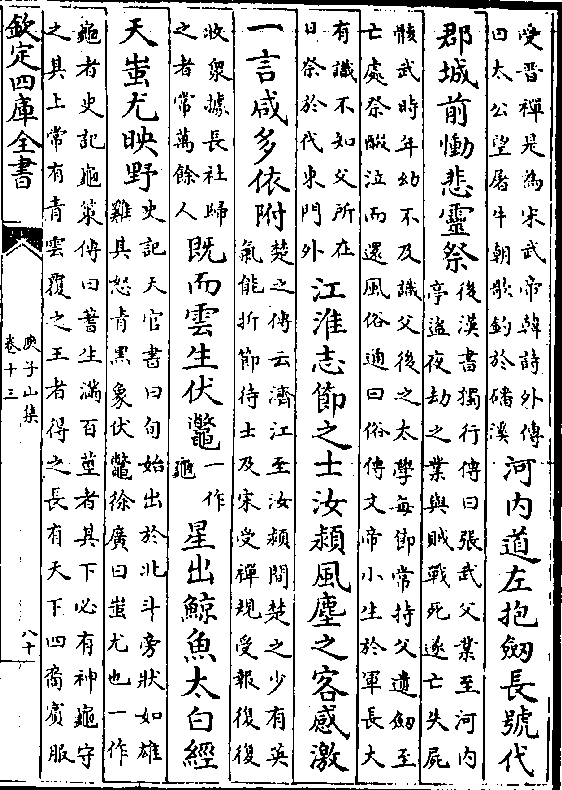 受晋禪是為宋武帝韓詩外傳
曰太公望屠牛朝歌釣於磻溪
河内道左抱劒長號代
郡城前慟悲靈祭
後漢書獨行傳曰張武父業至河内
亭盗夜劫之業與賊戰死遂亡失屍
骸武時年幼不及識父後之太學每節常持父遺劒至
亡處祭醊泣而還風俗通曰俗傳文帝小生於軍長大
有識不知父所在
日祭於代東門外
江淮志節之士汝潁風塵之客感激
一言咸多依附
楚之傳云濟江至汝潁間楚之少有英
氣能折節待士及宋受禪規受報復復
收衆據長社歸
之者常萬餘人
既而雲生伏鼈
一作
龜
星出鯨魚太白經
天蚩尤映野
史記天官書曰旬始出於北斗旁狀如雄
雞其怒青黑象伏鼈徐廣曰蚩尤也一作
龜者史記龜策傳曰蓍生滿百莖者其下必有神龜守
之其上常有青雲覆之王者得之長有天下四裔賓服
欽定四庫全書
庾子山集
卷十三
八十